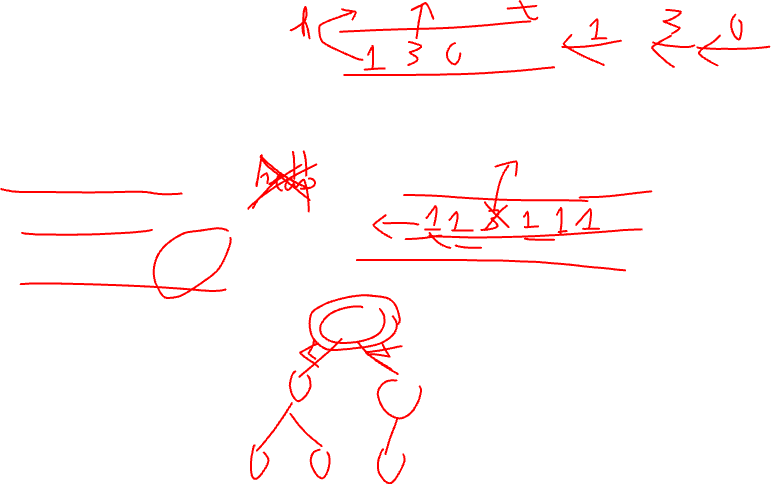 h t
1 3 0 1 3 0
1 1 3 1 1 1